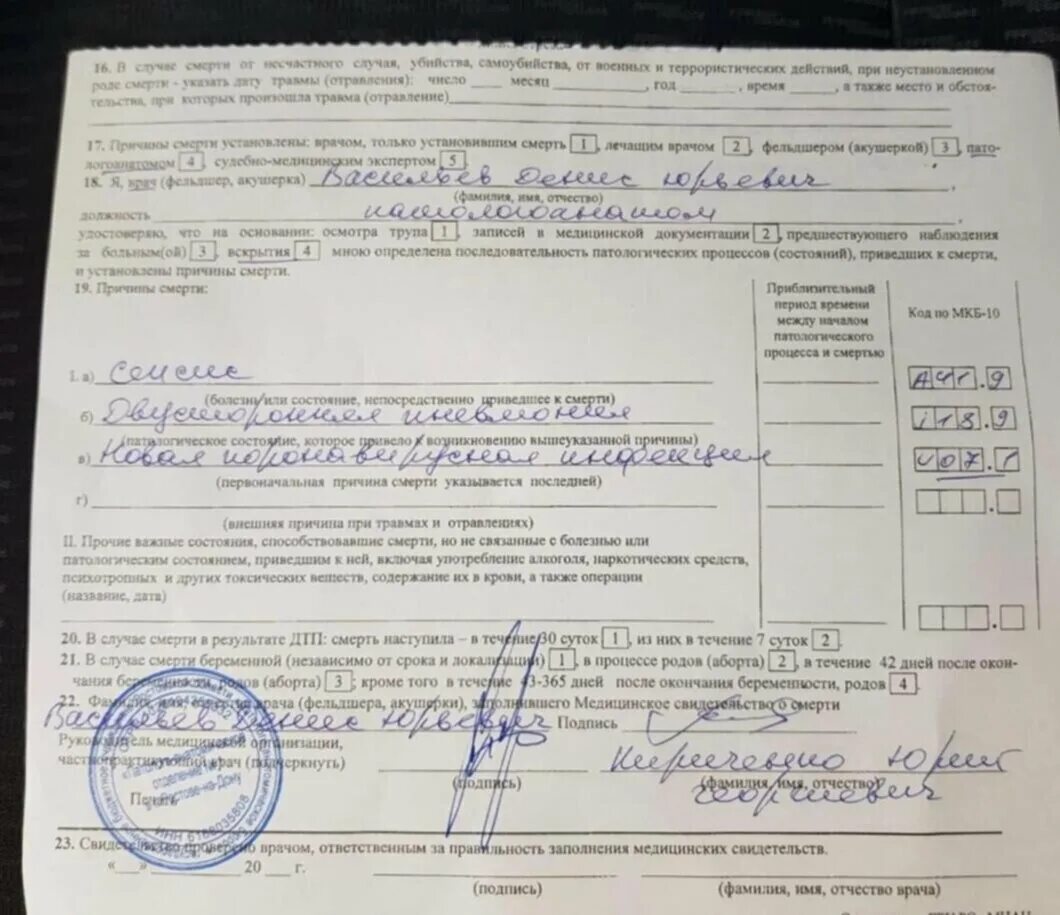 16. В случае смерти от несчастного случая, убийства, самоубийства, от военных и террористических действий, при неустановленном
роде смерти - указать дату травмы (отравления): число ____ месяц __________, год ______, время _____, а также место и обстоя-
тельства, при которых произошла травма (отравление)
17. Причины смерти установлены: врачом, только установившим смерть 1, лечащим врачом 2, фельдшером (акушеркой) 3, пато-
логоанатомом 4, судебно-медицинским экспертом 5
18. Я, врач (фельдшер, акушерка) Васильев Денис Юрьевич,
(фамилия, имя, отчество)
должность патологоанатом,
удостоверяю, что на основании: осмотра трупа 1, записей в медицинской документации 2, предшествующего наблюдения
за больным(ой) 3, вскрытия 4 мною определена последовательность патологических процессов (состояний), приведших к смерти,
и установлены причины смерти.
19. Причины смерти:
Приблизительный
период времени
между началом
патологического
процесса и смертью
Код по МКБ-10
I. а) Сепсис A41.9
(болезнь или состояние, непосредственно приведшее к смерти)
б) Двусторонняя пневмония i18.9
(патологическое состояние, которое привело к возникновению вышеуказанной причины)
в) Новая коронавирусная инфекция U07.1
(первоначальная причина смерти указывается последней)
г)
(внешняя причина при травмах и отравлениях)
II. Прочие важные состояния, способствовавшие смерти, но не связанные с болезнью или
патологическим состоянием, приведшим к ней, включая употребление алкоголя, наркотических средств,
психотропных и других токсических веществ, содержание их в крови, а также операции
(название, дата)
20. В случае смерти в результате ДТП: смерть наступила – в течение 30 суток 1, из них в течение 7 суток 2.
21. В случае смерти беременной (независимо от срока и локализации) 1, в процессе родов (аборта) 2, в течение 42 дней после окон-
чания беременности, родов (аборта) 3; кроме того в течение 43-365 дней после окончания беременности, родов 4.
22. Фамилия, имя, отчество врача (фельдшера, акушерки), заполнившего Медицинское свидетельство о смерти
Васильев Денис Юрьевич Подпись
Руководитель медицинской организации,
частнопрактикующий врач (подчеркнуть) Кириченко Юрий
(подпись) (фамилия, имя, отчество)
Георгиевич
Печать
отделение
Ростове-на-Дону
ИНН 6168035808
23. Свидетельство проверено врачом, ответственным за правильность заполнения медицинских свидетельств.
«___» __________ 20 ___ г.
(подпись) (фамилия, имя, отчество врача)